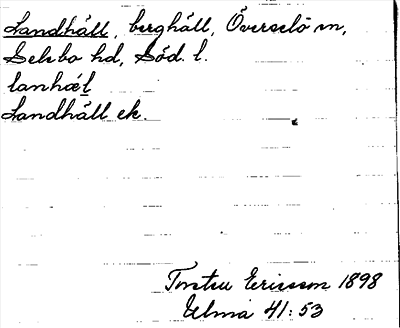 Landhäll, berghäll, Överselö sn,
Selebo hd, Söd. l.
lanhæl
Landhäll ek.
Torsten Ericsson 1898
Ulma 41:53